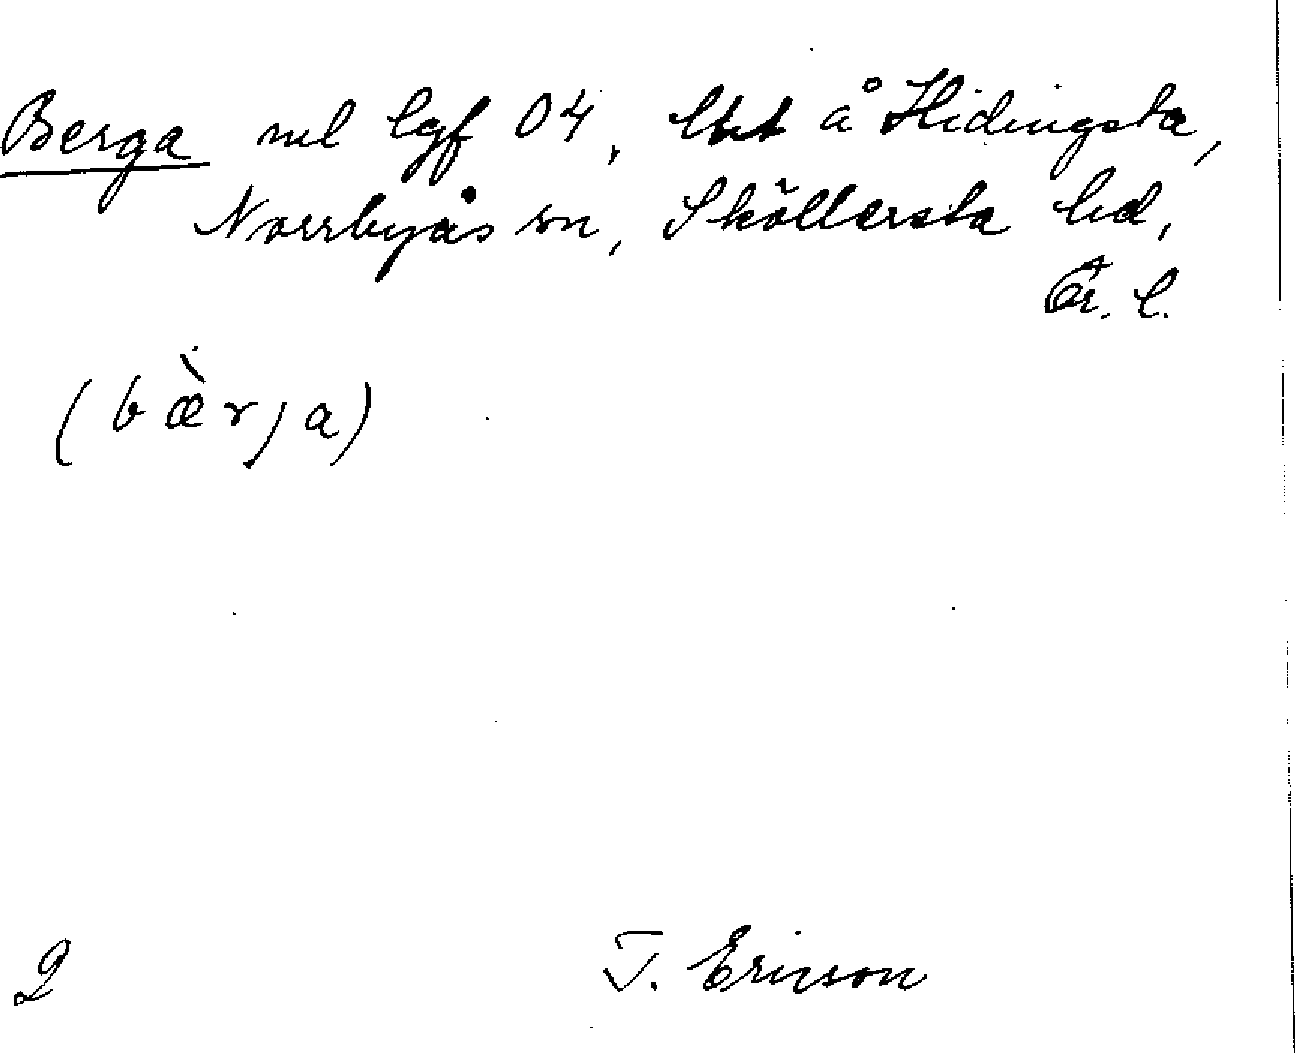 Berga nel lgf 04, lht å Hidingsta,
Norrbyås sn, Sköllersta hd,
Ör. l.
(bæ̀rja)
2 T. Ericson